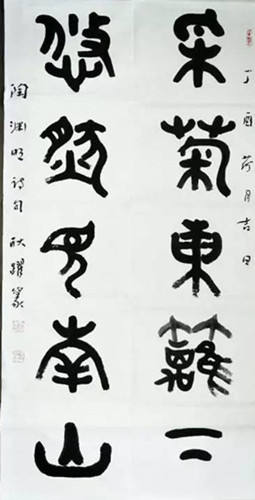 丁酉荷月吉日
采菊東籬下
悠然見南山
陶渊明詩句 耿躍篆